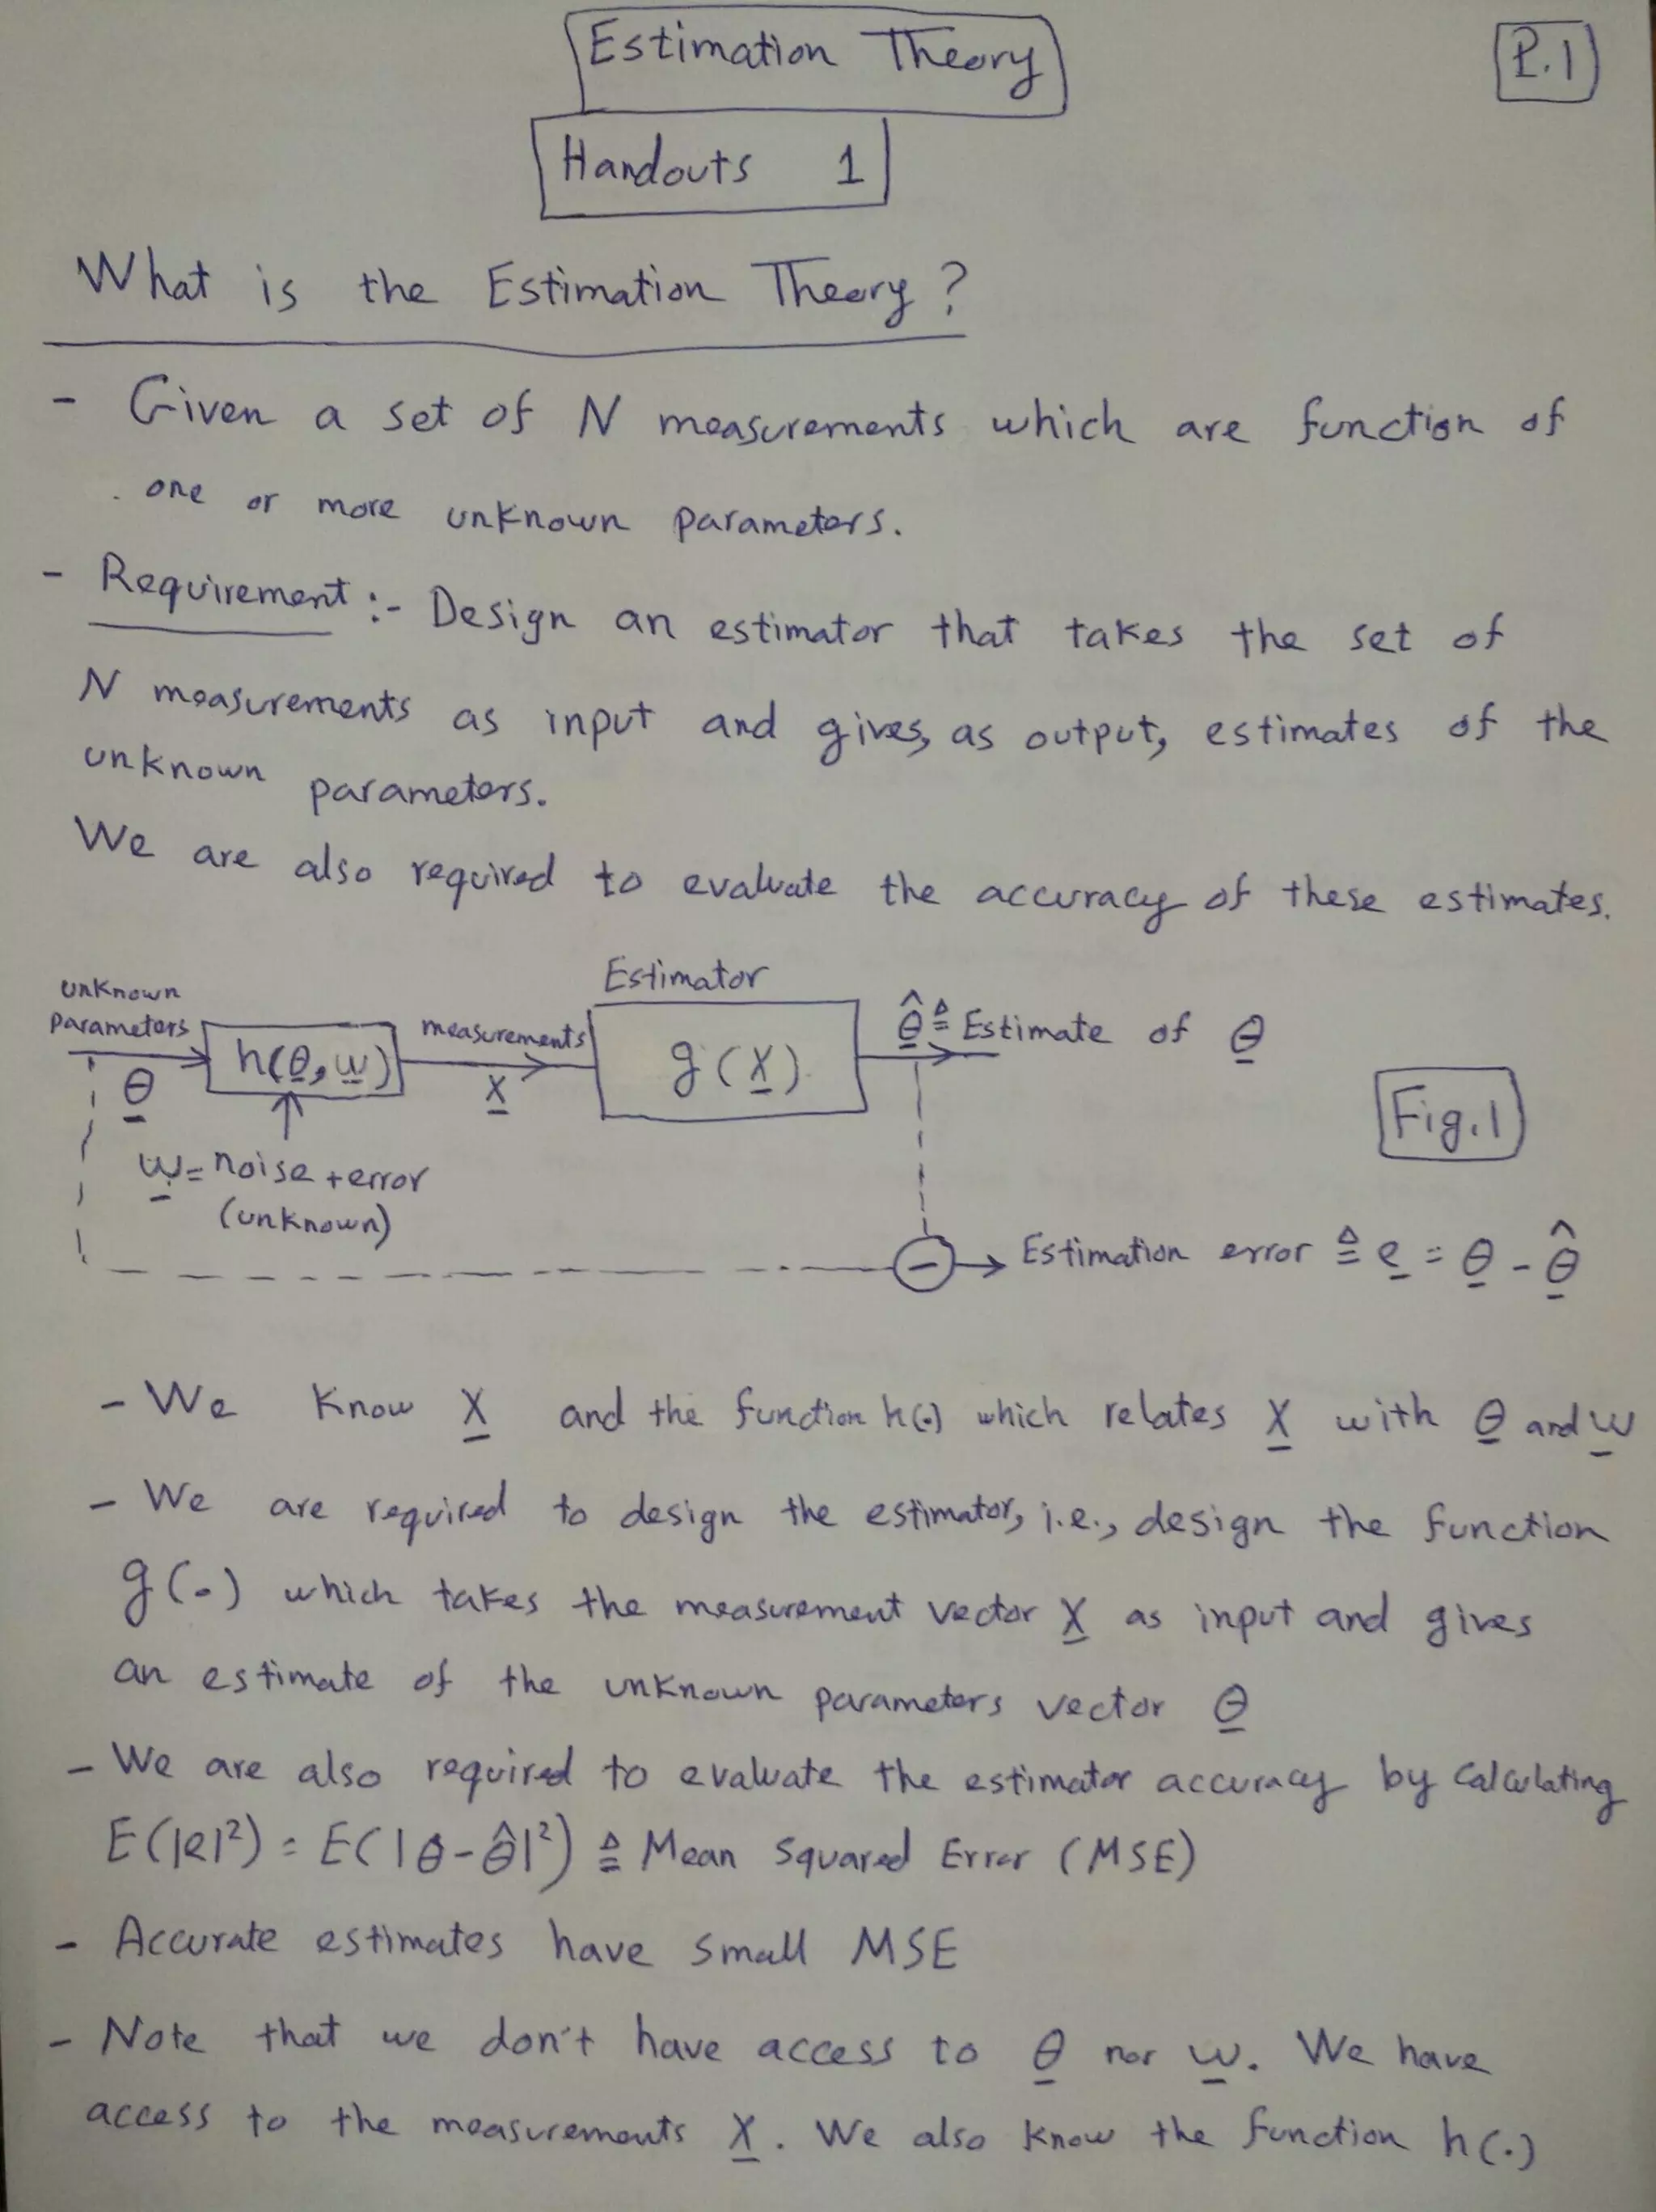 Estimation Theory
P.1
Handouts 1
What is the Estimation Theory?
- Given a set of N measurements which are function of
one or more unknown parameters.
- Requirement :- Design an estimator that takes the set of
N measurements as input and gives, as output, estimates of the
unknown parameters.
We are also required to evaluate the accuracy of these estimates.
unknown
parameters
θ
h(θ, w)
measurements
X
Estimator
g(X)
θ̂ ≜ Estimate of θ
Fig.1
w = noise + error
(unknown)
− → Estimation error ≜ e = θ - θ̂
- We know X and the function h(.) which relates X with θ and w
- We are required to design the estimator, i.e., design the function
g(.) which takes the measurement vector X as input and gives
an estimate of the unknown parameters vector θ
- We are also required to evaluate the estimator accuracy by calculating
E(|e|²) = E(|θ-θ̂|²) ≜ Mean Squared Error (MSE)
- Accurate estimates have small MSE
- Note that we don't have access to θ nor w. We have
access to the measurements X. We also know the function h(.)